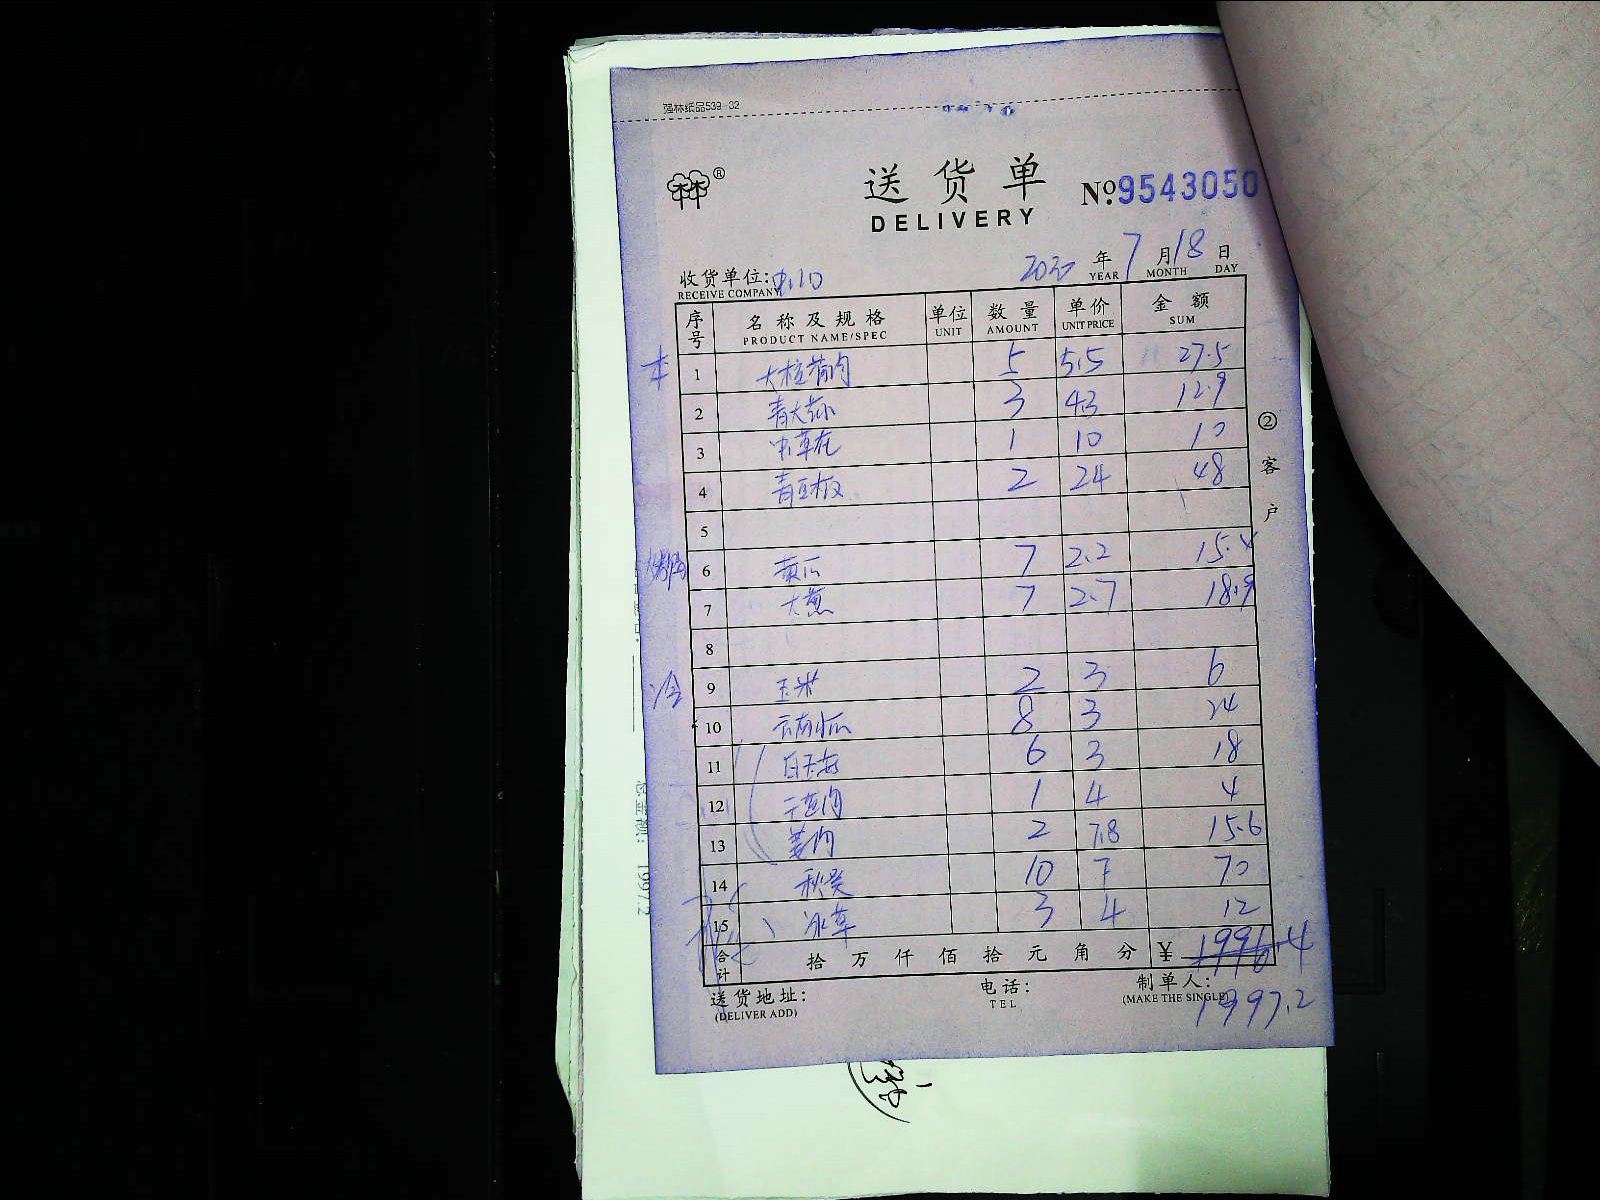 强林纸品539-32
送货单 №9543050
DELIVERY
收货单位: 年 7 月 18 日
RECEIVE COMPANY YEAR MONTH DAY
序号 名称及规格 单位 数量 单价 金额
PRODUCT NAME/SPEC UNIT AMOUNT UNIT PRICE SUM
本 1 5 5.5 27.5
2 青大 3 4.3 12.9
3 虫草花 1 10 10
4 青豆板 2 24 48
5
6 黄瓜 7 2.2 15.4
7 大葱 7 2.7 18.9
8
冷 9 玉米 2 3 6
10 云南小瓜 8 3 24
11 白玉菇 6 3 18
12 1 4 4
13 姜肉 2 7.8 15.6
14 秋葵 10 7 70
15 冰草 3 4 12
合计 拾 万 仟 佰 拾 元 角 分 ¥ 1996.4
送货地址: 电话: 制单人:
(DELIVER ADD) TEL (MAKE THE SINGLE) 1997.2
② 客户
1997.2